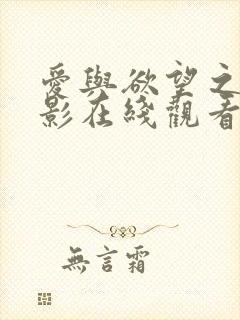 愛與欲望之
影在綫觀看
無言霜